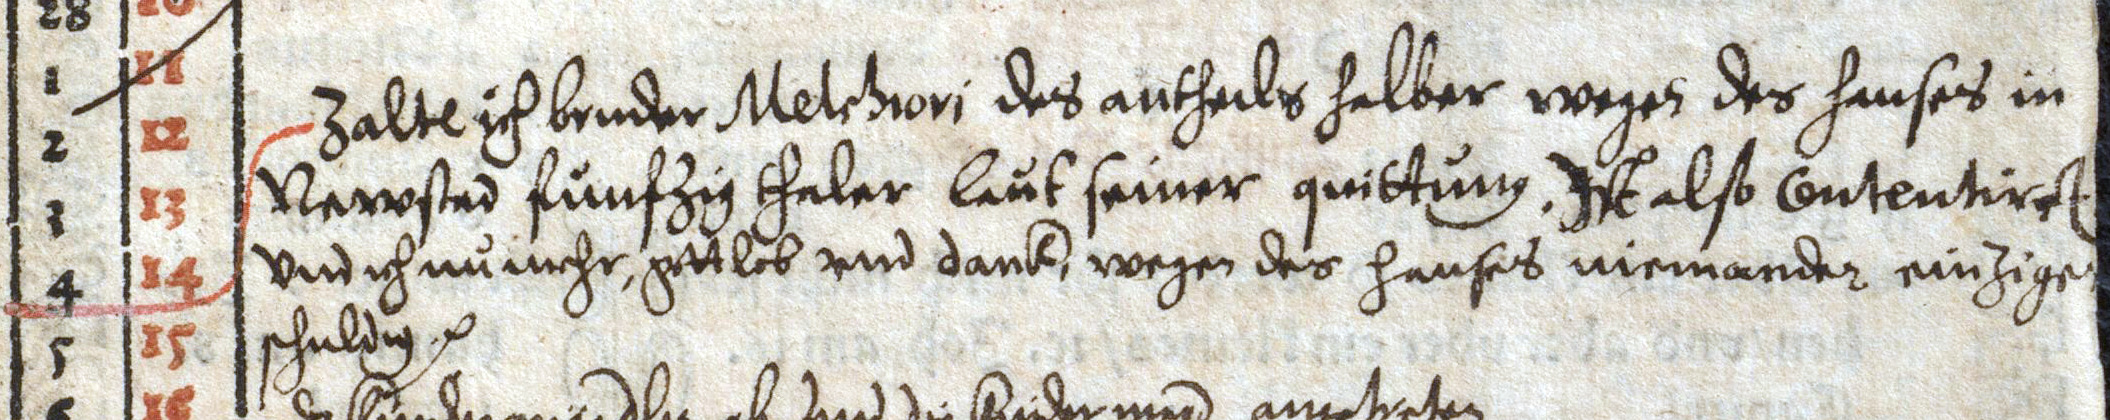 28 10
1 11
Zalte ich bruder Melchiori des antheils halber wegen des hauses in
2 12
Newstad funfzig thaler laut seiner quittung. Ist also Contentiret
3 13
Vnd ich nu mehr, gott lob vnd danck, wegen des hauses niemandes einzige
4 14
schuldig
5 15
6 16